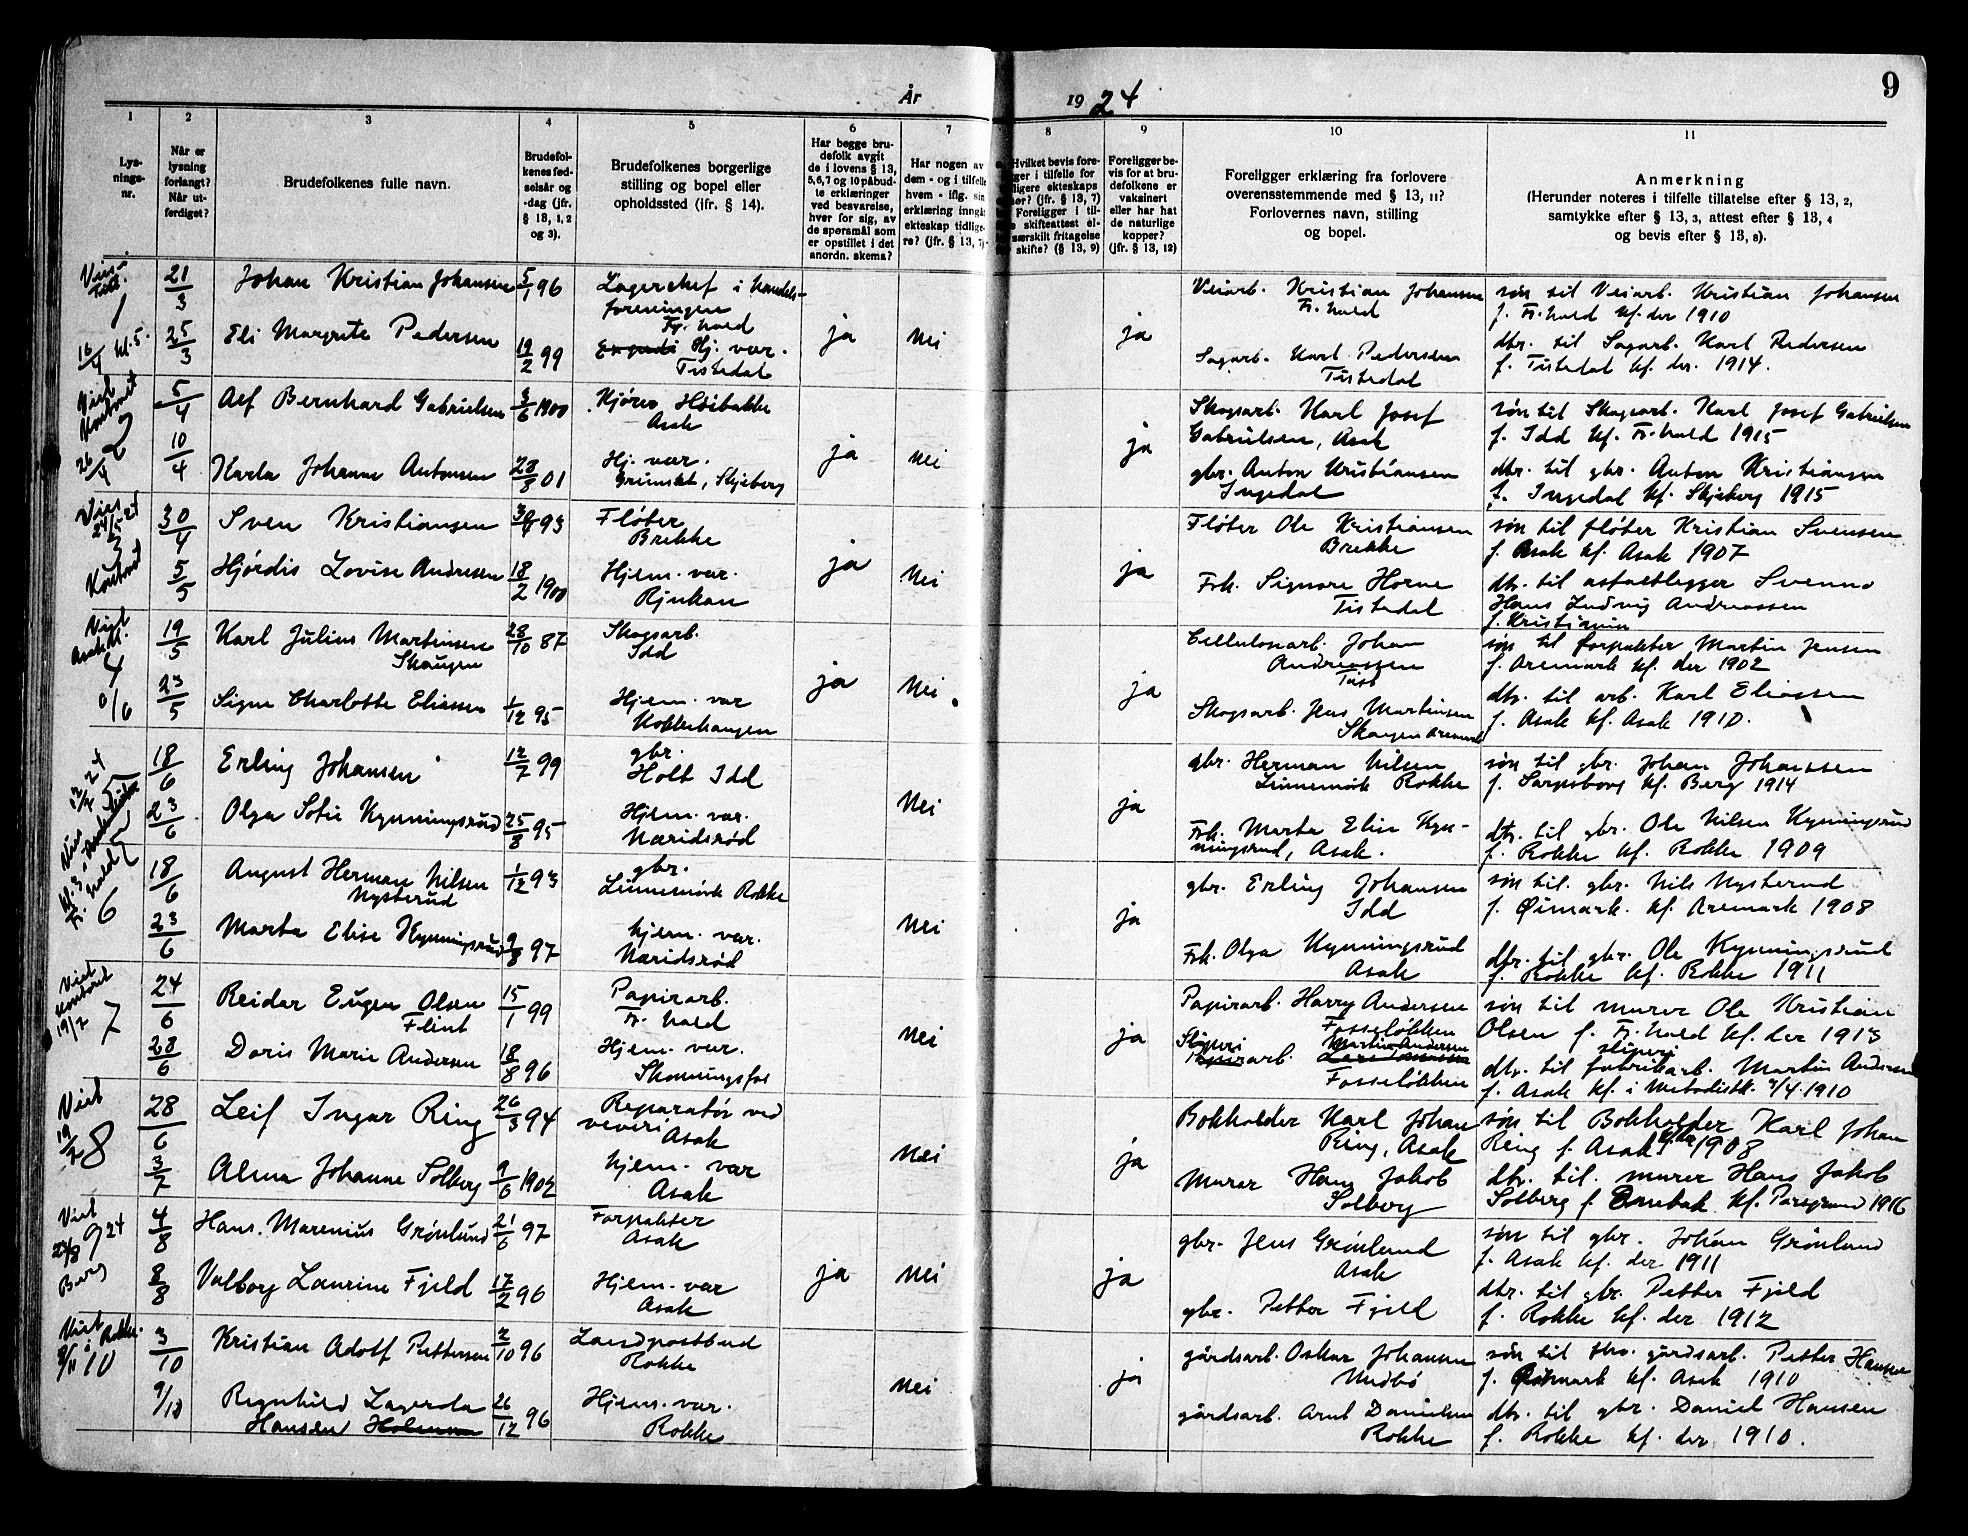 År 1924
9
1 2 3 4 5 6 7 8 9 10 11
Lys-
nings-
nr.
Når er
lysning
forlangt?
Når ut-
færdiget?
Brudefolkenes fulle navn.
Brudefol-
kenes fød-
selsår og
-dag (jfr.
§ 13, 1, 2
og 3).
Brudefolkenes borgerlige
stilling og bopel eller
opholdssted (jfr. § 14).
Har begge bru-
defolk avgit
de i lovens § 13,
5, 6, 7 og 10 påbud-
te erklæringer
ved besvarelse,
hver for sig, av
de spørsmål som
er opstillet i det
anordn. skema?
Har nogen av
dem - og i tilfelle
hvem - iflg. sin
erklæring inngåt
ekteskap tidlige-
re? (jfr. § 13, 7).
Hvilket bevis fore-
ger i tilfelle for
ligere ekteskaps
? (jfr. § 13, 7)
Foreligger i til-
skifteattest el-
særskilt fritagelse
skifte? (§ 13, 9)
Foreligger be-
vis for at bru-
defolkene er
vaksinert
eller har hat
de naturlige
kopper?
(jfr. § 13, 12)
Foreligger erklæring fra forlovere
overensstemmende med § 13, 11?
Forlovernes navn, stilling
og bopel.
Anmerkning
(Herunder noteres i tilfelle tillatelse efter § 13, 2,
samtykke efter § 13, 3, attest efter § 13, 4
og bevis efter § 13, 8).
1
16/4 kl. 5.
21/3
25/3
Johan Kristian Johansen 5/1 96
Lagerchef i handels-
foreningen
Fr.hald
Eli Margrete Pedersen 19/2 99
Hj. vær.
Tistedal
ja nei ja
Veiarb. Kristian Johansen
Fr.hald
Sagarb. Karl Pedersen
Tistedal
søn til Veiarb. Kristian Johansen
f. Fr.hald kf. der 1910
dtr. til Sagarb. Karl Pedersen
f. Tistedal kf. der. 1914.
Viet
Kontoret
2
26/4
5/4
10/4
Alf Bernhard Gabrielsen 3/6 1900
Kjører Høibakke
Asak
Karla Johanne Antonsen 28/8 01
Hj. vær.
Grimstet, Skjeberg
ja nei ja
Skogsarb. Karl Josef
Gabrielsen, Asak
gbr. Anton Kristiansen
Ingedal
søn til Skogsarb. Karl Josef Gabrielsen
f. Idd kf. Fr.hald 1915
dtr. til gbr. Anton Kristiansen
f. Ingedal kf. Skjeberg 1915
Viet
24/5 24
3
Kontoret
30/4
5/5
Sven Kristiansen 93
Fløter
Brekke
Hjørdis Lovise Andresen 18/2 1900
Hjem. vær.
Rjukan
ja nei ja
Fløter Ole Kristiansen
Brekke
Frk. Signore Horne
Tistedal
søn til fløter Kristian Svensen
f. Asak kf. Asak 1907
dtr. til asfaltlegger Svenno
Hans Ludvig Andreassen
f. Kristiania
Viet
Asak k.
4
6/6
19/5
23/5
Karl Julius Martinsen
Skaugen
28/10 87
Skogsarb.
Idd
Signe Charlotte Eliassen 1/12 95
Hjem. vær
Kokkehaugen
ja nei ja
Cellulosearb. Johan
Andreassen
Tist
Skogsarb. Jens Martinsen
Skaugen Aremark
søn til forpakter Martin Jensen
f. Aremark kf. der 1902
dtr. til arb. Karl Eliassen
f. Asak kf. Asak 1910.
5
18/6
23/6
Erling Johansen 12/7 99
gbr.
Holt Idd
Olga Sofie Kynningsrud 25/8 95
Hjem. vær.
Næridsrød
nei ja
gbr. Herman Nilsen
Linnemørk Rokke
Frk. Marta Elise Kyn-
ningsrud, Asak.
søn til gbr. Johan Johanssen
f. Sarpsborg kf. Berg 1914
dtr. til gbr. Ole Nilsen Kynningsrud
f. Rokke kf. Rokke 1909
6
18/6
23/6
August Herman Nilsen
Nysterud
1/12 93
gbr.
Linnemørk Rokke
Marta Elise Kynningsrud 9/8 97
hjem. vær.
Næridsrød
nei ja
gbr. Erling Johansen
Idd
Frk. Olga Kynningsrud
Asak
søn til. gbr. Nils Nysterud
f. Øimark. kf. Aremark 1908
dtr. til gbr. Ole Kynningsrud
f. Rokke kf. Rokke 1911
Viet
kontoret
19/7
7
24/6
28/6
Reidar Eugen Olsen
Flint
15/1 99
Papirarb.
Fr. hald
Doris Marie Andersen 18/8 96
Hjem. vær.
Skonningsfos
nei ja
Papirarb. Harry Andersen
Fosseløkken
Sliperi
Papirarb. Martin Andersen
Fosseløkken
søn til murer Ole Kristian
Olsen f. Fr.hald kf. der 1913
sliperi
dtr. til fabrikarb. Martin Andersen
f. Asak kf. i Metodistk. 4/4 1910
Viet
19/7
8
28/6
3/7
Leif Ingar Ring 26/3 94
Reparatør ved
veveri
Asak
Alma Johanne Solberg 9/6 1902
hjem. vær
Asak
nei ja
Bokholder Karl Johan
Ring, Asak
Murer Hans Jakob
Solberg
søn til Bokholder Karl Johan
Ring f. Asak kf. der 1908
dtr. til. murer Hans Jakob
Solberg f. kf. Porsgrund 1916
Viet
9 24
23/8
Berg
4/8
8/8
Hans. Marenius Grønlund 21/6 97
Forpakter
Asak
Valborg Laurine Fjeld 17/2 96
Hjem. vær
Asak
ja nei ja
gbr. Jens Grønlund
Asak
gbr. Petter Fjeld
søn til gbr. Johan Grønlund
f. Asak kf. der 1911
dtr. til gbr. Petter Fjeld
f. Rokke kf. der 1912
Viet
i Rokke.
10
3/10
9/10
Kristian Adolf Pettersen 2/10 96
Landpostbud
Rokke
Ragnhild Lagerda
Hansen Holman
26/12 96
Hjem. vær.
Rokke
nei ja
gårdsarb. Oskar Johansen
gårdsarb. Arnt Danielsen
Rokke
søn til fhv. gårdsarb. Petter Hansen
f. Øimark kf. Asak 1910
dtr. til gbr. Daniel Hansen
f. Rokke kf. der 1910.